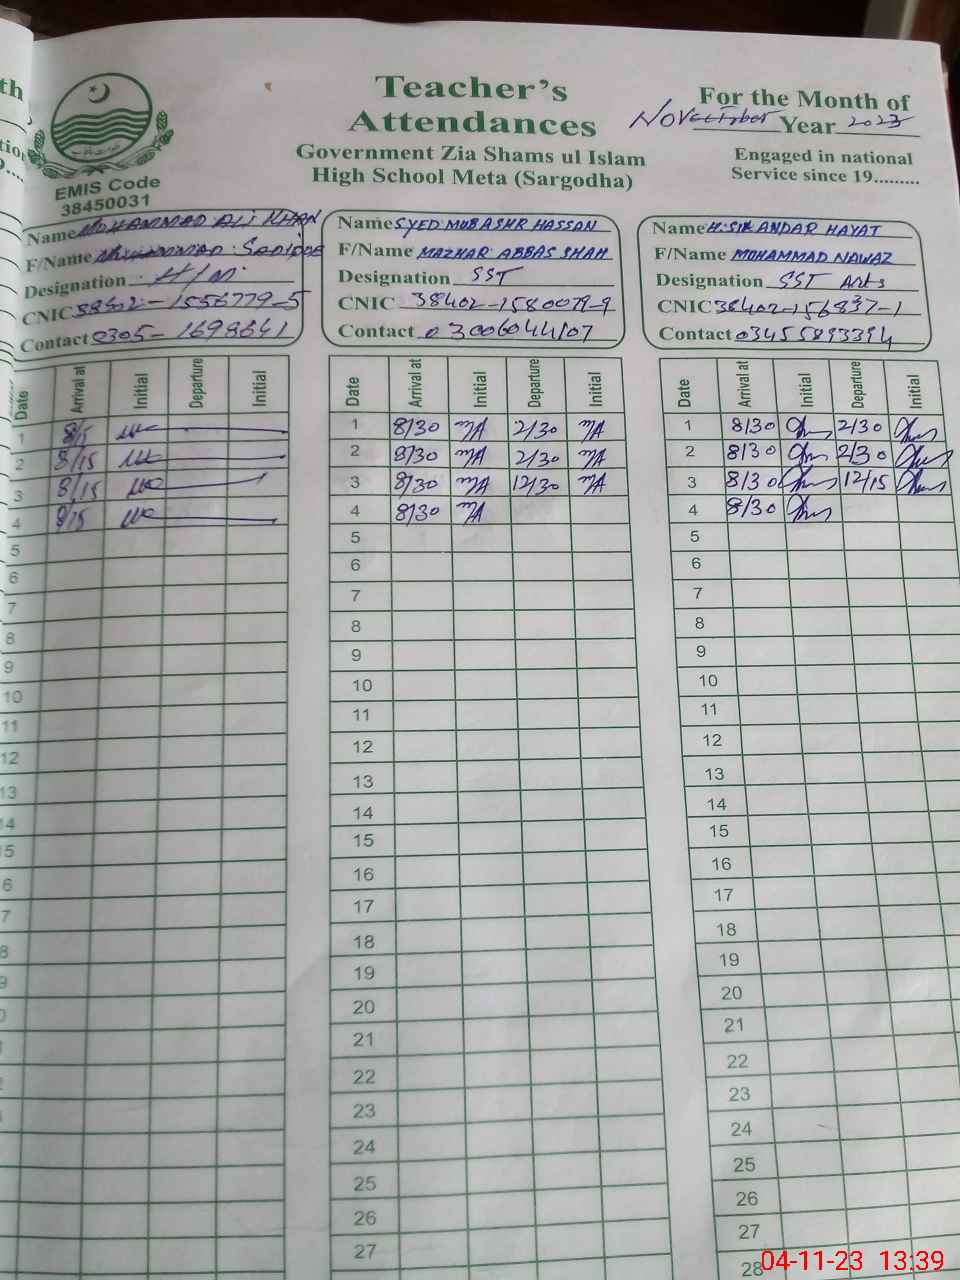 Teacher's
Attendances
Government Zia Shams ul Islam
High School Meta (Sargodha)
For the Month of
November Year 2023
Engaged in national
Service since 19.........
EMIS Code
38450031
Name MOHAMMAD ALI KHAN
F/Name MUHAMMAD SADIQUE
Designation H/M
CNIC 38402-1556779-5
Contact 0305-1698641
Name SYED MUBASHR HASSAN
F/Name MAZHAR ABBAS SHAH
Designation SST
CNIC 38402-1580079-9
Contact 03006044107
Name H. SIKANDAR HAYAT
F/Name MOHAMMAD NAWAZ
Designation SST Arts
CNIC
Contact 03455893394
Date Arrival at Initial Departure Initial
1 8/15
2 8/15
3 8/15
4 8/15
5
6
7
8
9
10
11
12
13
14
15
Date Arrival at Initial Departure Initial
1 8/30 MA 2/30 MA
2 8/30 MA 2/30 MA
3 8/30 MA 12/30 MA
4 8/30 MA
5
6
7
8
9
10
11
12
13
14
15
16
17
18
19
20
21
22
23
24
25
26
27
Date Arrival at Initial Departure Initial
1 8/30 2/30
2 8/30 2/30
3 8/30 12/15
4 8/30
5
6
7
8
9
10
11
12
13
14
15
16
17
18
19
20
21
22
23
24
25
26
27
28
04-11-23 13:39